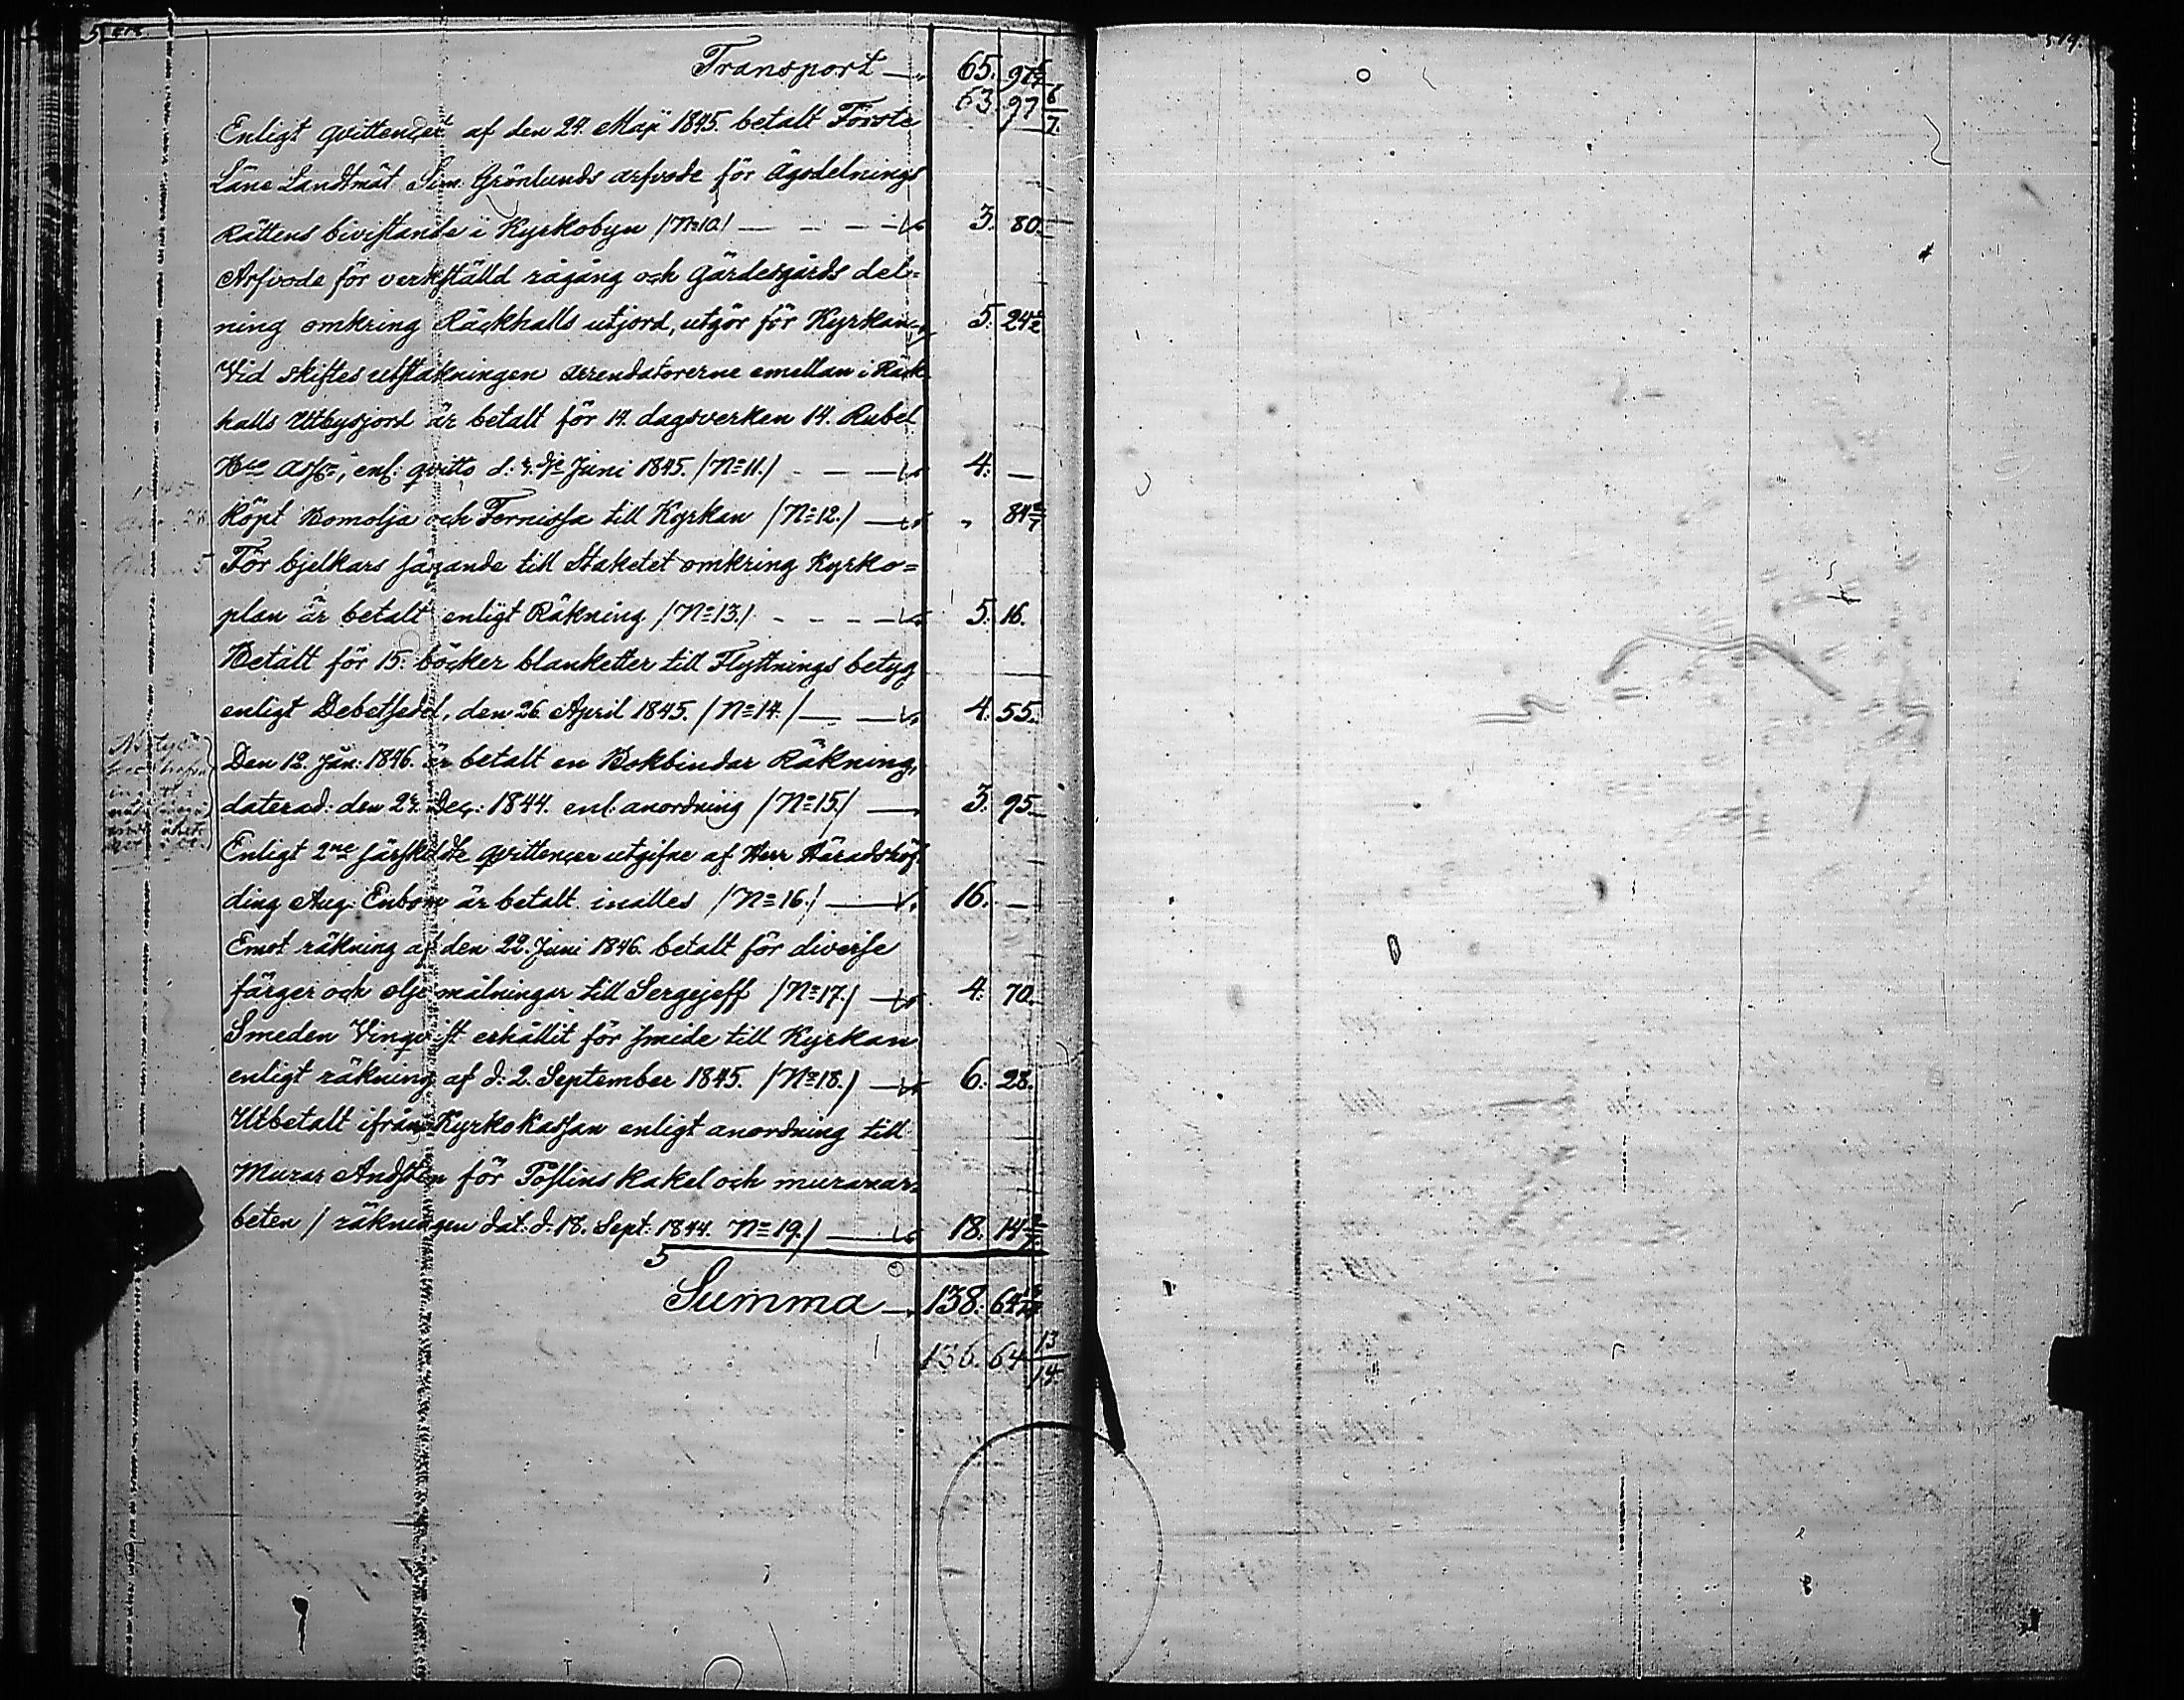 Transport 65. 97 6/7
63. 97 6/7
Enligt qvittencet af den 24. Maji 1845. betalt Förste
Läns Landtmät. Sim. Grönlunds arfvode för Ägodelnings
Rättens bivistande i Kyrkobyn /N=10/ — 3. 80.
Arfvode för verkställd rågång och Gärdesgårds del=
ning omkring Räckhalls utjord, utgör för Kyrkan 5. 24 1/2
Vid skiftes utstakningen arrendatorerne emellan i Räck
halls Utbysjord är betalt för 14. dagsverken 14. Rubel
Bco Ass., enl. qvitto d: Juni 1845. /N=11./ — 4. —
Köpt Bomolja och Fernissa till Kyrkan /N=12./ — „ 84
För bjelkars sågande till Staketet omkring Kyrko=
plan är betalt enligt Räkning /N=13./ — 5. 16.
Betalt för 15. böcker blanketter till Flyttnings betyg
enligt Debetsedel, den 26. April 1845. /N=14./ — 4. 55.
Den 12. Jan: 1846. är betalt en Bokbindar Räkning,
daterad: den Dec: 1844. enl. anordning /N=15/ — 3. 95.
Enligt 2ne särskildte qvittencer utgifne af Herr Häradshöf
ding Aug. Enbom är betalt inalles /N=16./ — 16. —
Emot räkning af den 22. Juni 1846. betalt för diverse
färger och olje målningar till Sergejeff /N=17./ — 4. 70.
Smeden Vinqvist erhållit för smide till Kyrkan
enligt räkning af d: 2. September 1845. /N=18./ — 6. 28.
Utbetalt ifrån Kyrkokassan enligt anordning till
Murar Andsten för Poslins kakel och murarar=
beten / räkningen dat: d. 18. Sept: 1844. N=19./ — 18. 14
5
Summa — 138. 64
136. 64 13/14